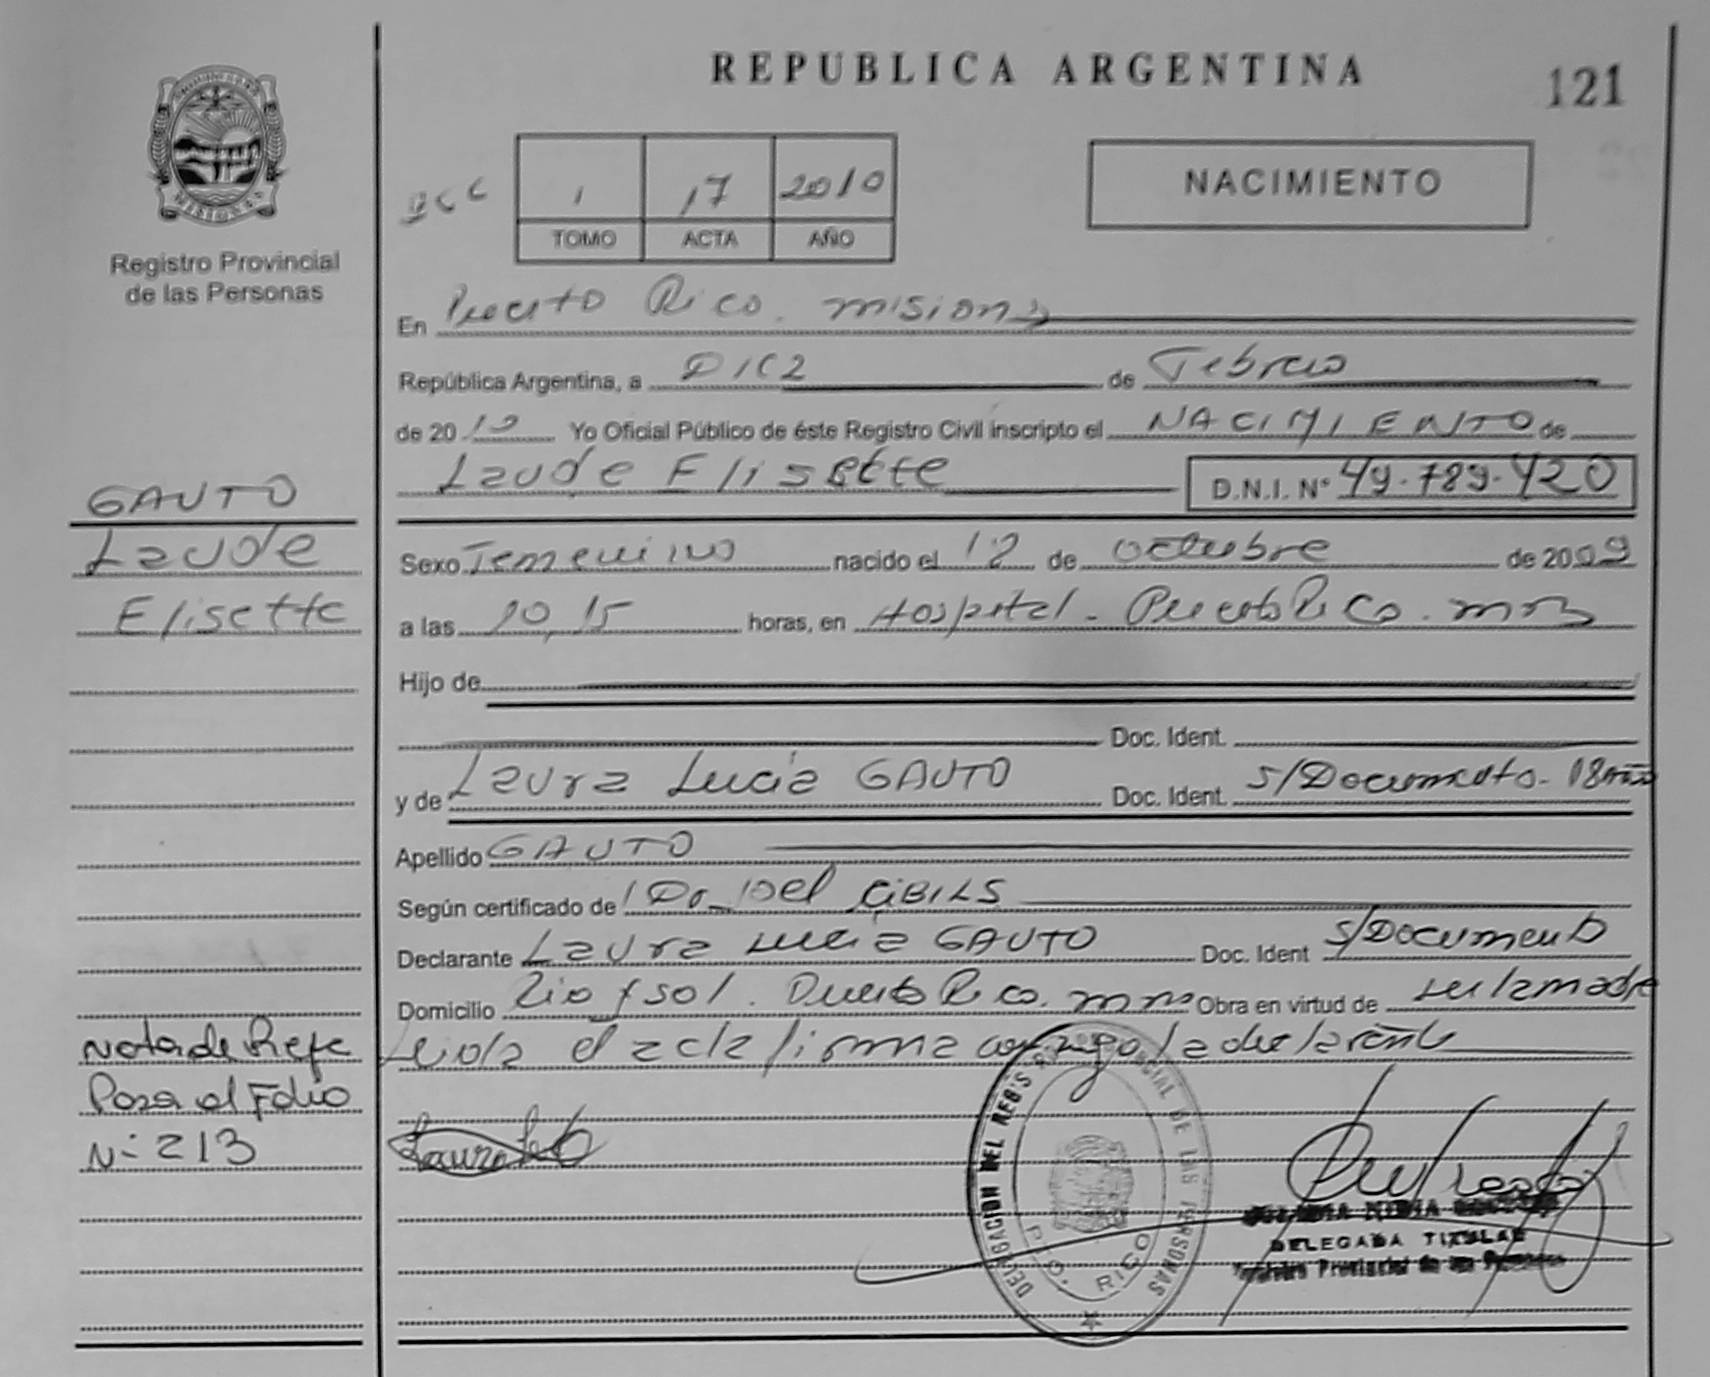 REPUBLICA ARGENTINA
121
1 17 2010
TOMO ACTA AÑO
NACIMIENTO
MISIONES
Registro Provincial
de las Personas
En Puerto Rico. misiones
República Argentina, a DIEZ de Febrero
de 2010 Yo Oficial Público de éste Registro Civil inscripto el NACIMIENTO de
Laude Elisette D.N.I. N° 49.789.420
GAUTO
Laude
Elisette
Sexo Femenino nacido el 12 de octubre de 2009
a las 10,15 horas, en Hospital - Puerto Rico. mns
Hijo de
Doc. Ident.
y de Laura Lucia GAUTO Doc. Ident. S/Documento- 18 años
Apellido GAUTO
Según certificado de CiBILS
Declarante Laura Lucia GAUTO Doc. Ident S/Documento
Domicilio Rio y sol. Puerto Rico. mns Obra en virtud de ser la madre
Leida el acta firma conmigo la declarante
Nota de Refe
Pasa al Folio
N° 213
DELEGACION DEL REG'S PROVINCIAL DE LAS PERSONAS
PTO. RICO
DELEGADA TITULAR
Registro Provincial de las Personas